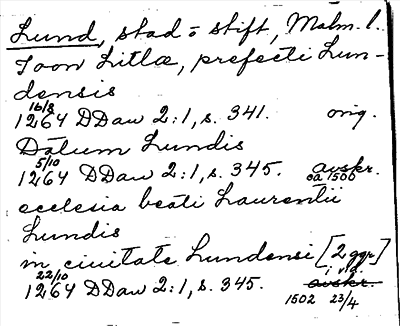 Lund, stad o stift, Malm. l.
Joon Litlæ, prefecti Lun-
densis
16/8
1264 DDan 2:1, s. 341. orig.
Datum Lundis
5/10
1264 DDan 2:1, s. 345. avskr.
ca 1500
ecclesia beati Laurentii
Lundis
in ciuitate Lundensi [2 ggr]
22/10 i vid.
1264 DDan 2:1, s. 345. avskr.
1502 23/4